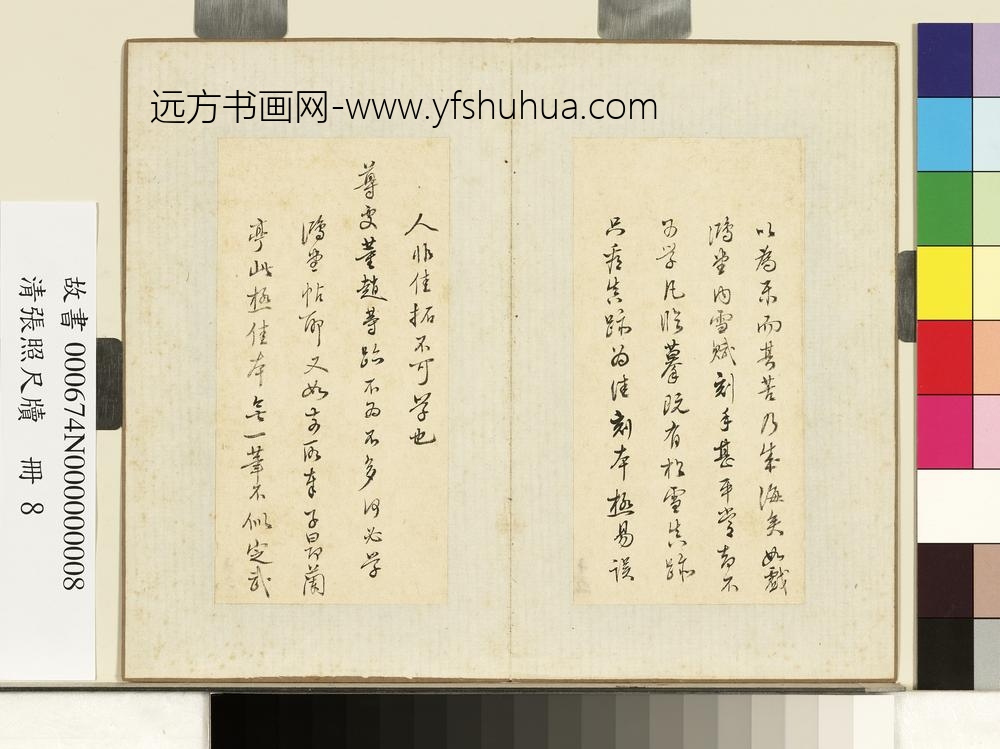 远方书画网-www.yfshuhua.com
以為樂而其苦乃成海矣如戲
鴻堂內雪賦刻手甚平常都不
可学凡臨摹既有松雪真跡
只看真跡為佳刻本極易誤
人非佳拓不可学也
尊处董趙等跡不為不多何必学
鴻堂帖耶又如前所奉子昂蘭
亭此極佳本無一筆不似定武
故書 000674N000000008
清張照尺牘 冊 8